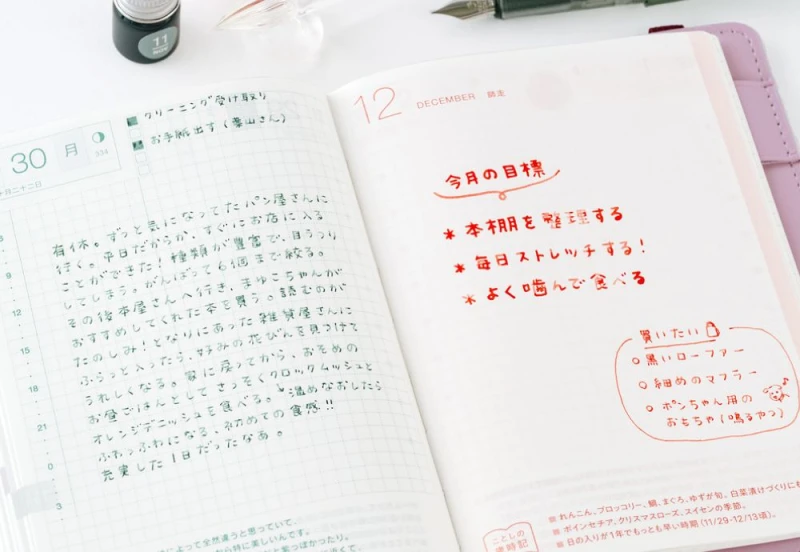 11
クリーニング受け取り
お手紙出す(葉山さん)
30 月
334
十月二十二日
9
12
15
18
21
0
3
有休。ずっと気になってたパン屋さんに
行く。平日だからか、すぐにお店に入る
ことができた!種類が豊富で、目うつり
してしまう。がんばって6個まで絞る。
その後本屋さんへ行き、まゆこちゃんが
おすすめしてくれた本を買う。読むのが
たのしみ!となりにあった雑貨屋さんに
ふらっと入ったら、好みの花びんを見つけて
うれしくなる。家に戻ってから、おそめの
お昼ごはんとしてさっそくクロックムッシュと
オレンジデニッシュを食べる。温めなおしたら
ふわっふわになる、初めての食感!!
充実した1日だったなあ。
によって全然違うと思っていて、
から特に楽しいんです。
12 DECEMBER 師走
今月の目標
* 本棚を整理する
* 毎日ストレッチする!
* よく噛んで食べる
買いたい
○ 黒いローファー
○ 細めのマフラー
○ ポンちゃん用の
おもちゃ(鳴るやつ)
ことしの
歳時記
れんこん、ブロッコリー、鯛、まぐろ、ゆずが旬。白菜漬けづくりにも
ポインセチア、クリスマスローズ、スイセンの季節。
日の入りが1年でもっとも早い時期(11/29-12/13頃)。